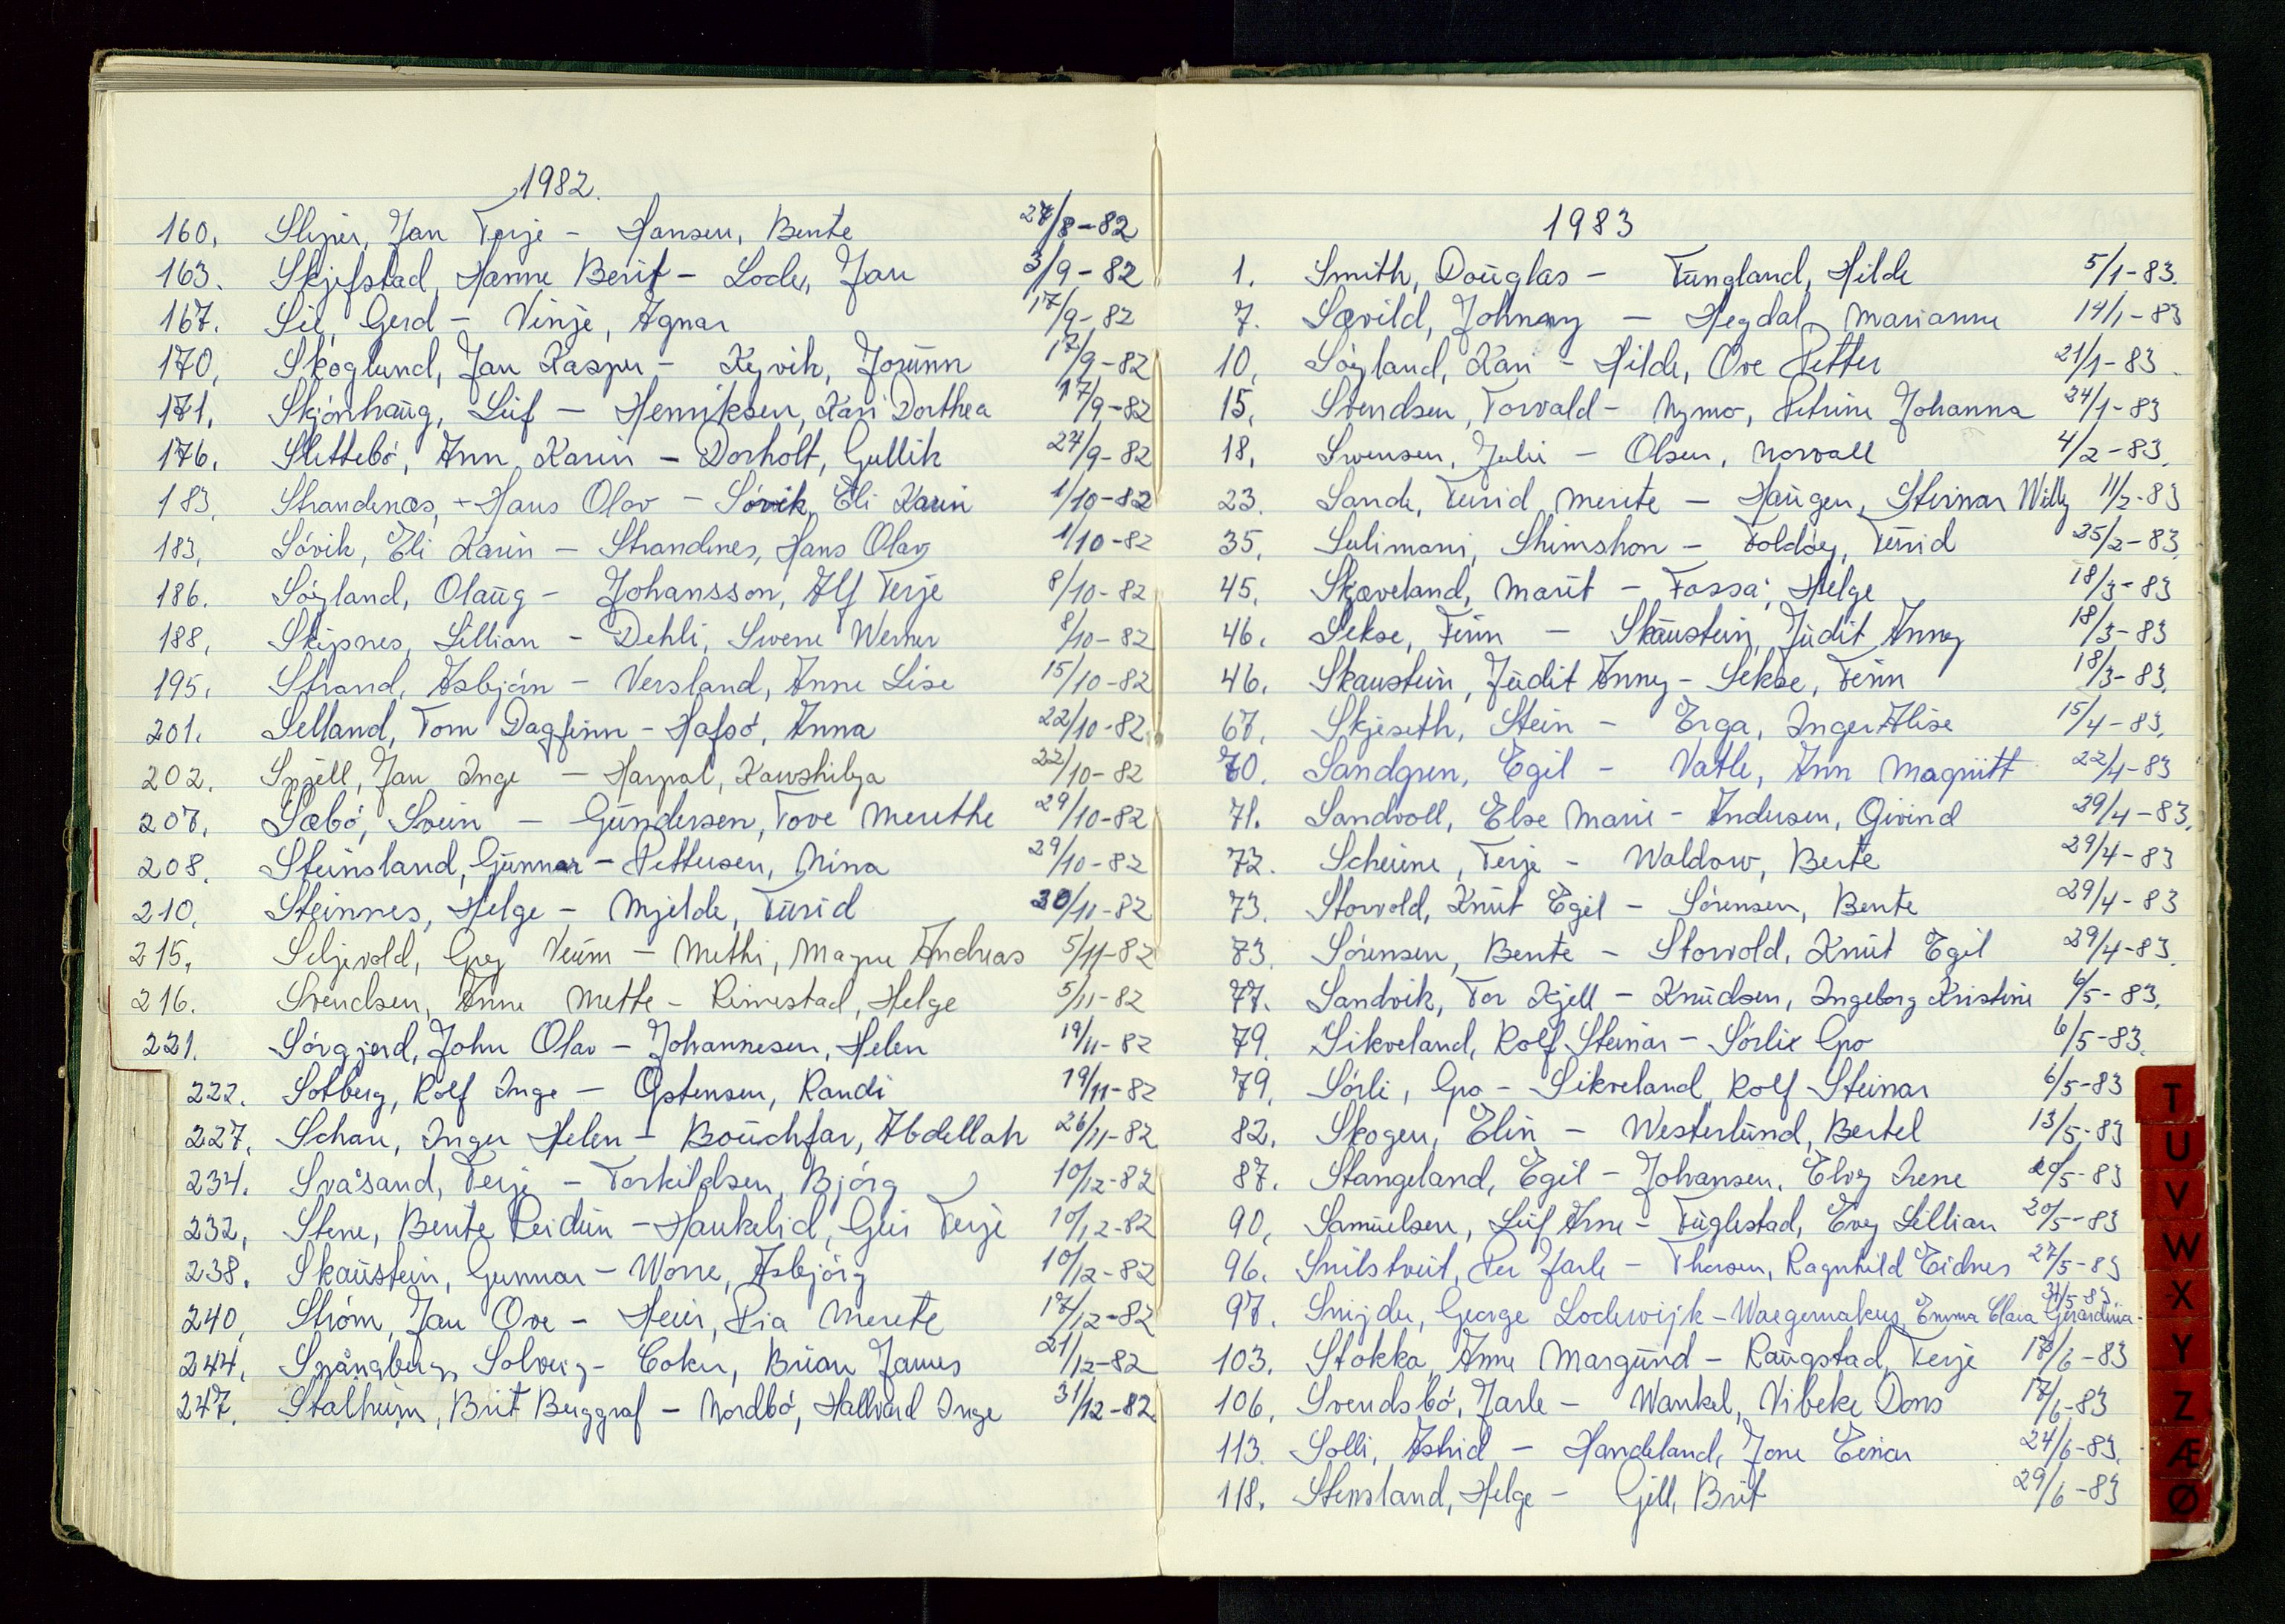 1982.
160. Slyper, Jan Terje - Hansen, Bente 27/8-82
163. Skjefstad, Hanne Berit - Lode, Jan 3/9-82
167. Lie, Gerd - Vinje, Agnar 17/9-82
170. Skoglund, Jan Kasper - Kyvik, Jorunn 17/9-82
171. Skjönhaug, Leif - Henriksen, Kari Dorthea 17/9-82
176. Slettebö, Ann Karin - Dorholt, Gullik 24/9-82
183. Strandenæs, Hans Olav - Sövik, Eli Karin 1/10-82
183. Sövik, Eli Karin - Strandenes, Hans Olav 1/10-82
186. Söyland, Olaug - Johansson, Alf Terje 8/10-82
188. Skipnes, Lillian - Dehli, Swene Werner 8/10-82
195. Strand, Asbjörn - Versland, Anne Lise 15/10-82
201. Selland, Tom Dagfinn - Hafsö, Anna 22/10-82
202. Spjell, Jan Inge - Harpal, Kawshilya 22/10-82
207. Sæbö, Svein - Gundersen, Tove Merethe 29/10-82
208. Steinsland, Gunnar - Pettersen, Nina 29/10-82
210. Steinnes, Helge - Mjelde, Turid 30/11-82
215. Seljevold, Grey Veum - Methi, Magne Andreas 5/11-82
216. Svendsen, Anne Mette - Rimestad, Helge 5/11-82
221. Sörgjerd, John Olav - Johannesen, Helen 19/11-82
222. Solberg, Rolf Inge - Östensen, Randi 19/11-82
227. Schau, Inger Helen - Bouchfar, Abdellah 26/11-82
234. Svåsand, Terje - Torkildsen, Bjórg 10/12-82
232. Stene, Bente Reidun - Haukelid, Geir Terje 10/12-82
238. Skaustein, Gunnar - Worre, Asbjörg 10/12-82
240. Ström, Jan Ove - Heier, Pia Merete 17/12-82
244. Spångberg, Solveig - Coker, Brian James 21/12-82
247. Stalheim, Brit Berggraf - Nordbö, Hallvard Inge 31/12-82
1983
1. Smith, Douglas - Tungland, Hilde 5/1-83.
7. Sævild, Johnny - Hegdal, Marianne 14/1-83
10. Söyland, Kari - Hilde, Ove Petter 21/1-83.
15. Svendsen, Torvald - Nymo, Petrine Johanna 24/1-83
18. Svensen, Julie - Olsen, Norvall 4/2-83.
23. Sande, Turid Merete - Haugen, Steinar Willy 11/2-83
35. Sulimani, Shimshon - Foldöy, Turid 25/2-83.
45. Skjæveland, Marit - Fosså, Helge 18/3-83
46. Sekse, Finn - Skaustein, Judit Anny 18/3-83
46. Skaustein, Judit Anny - Sekse, Finn 18/3-83.
67. Skjeseth, Stein - Erga, Inger Alise 15/4-83.
70. Sandgren, Egil - Vatle, Ann Magritt 22/4-83
71. Sandvoll, Else Marie - Andersen, Öivind 29/4-83.
72. Scheine, Terje - Waldow, Berte 29/4-83
73. Storvold, Knut Egil - Sörensen, Bente 29/4-83
73. Sörensen, Bente - Storvold, Knut Egil 29/4-83.
77. Sandvik, Tor Kjell - Knudsen, Ingeborg Kristine 6/5-83.
79. Sikveland, Rolf Steinar - Sörlie Gro 6/5-83.
79. Sörli, Gro - Sikveland, Rolf Steinar 6/5-83
82. Skogen, Elin - Westerlund, Bertel 13/5-83
87. Stangeland, Egil - Johansen, Elvy Irene 20/5-83
90. Samuelsen, Leif Arne - Fuglestad, Evy Lillian 20/5-83
96. Snilstveit, Per Jarle - Thorsen, Ragnhild Eidnes 27/5-83
97. Snijder, George Lodewijk - Waegemakers, Emma Clara Gerardina 31/5-83.
103. Stokka, Anne Margund - Raugstad, Terje 17/6-83
106. Svendsbö, Jarle - Wankel, Vibeke Dons 17/6-83
113. Solli, Astrid - Handeland, Jone Einar 24/6-83.
118. Stensland, Helge - Gjell, Brit 29/6-83
T
U
V
W
X
Y
Z
Æ
Ø